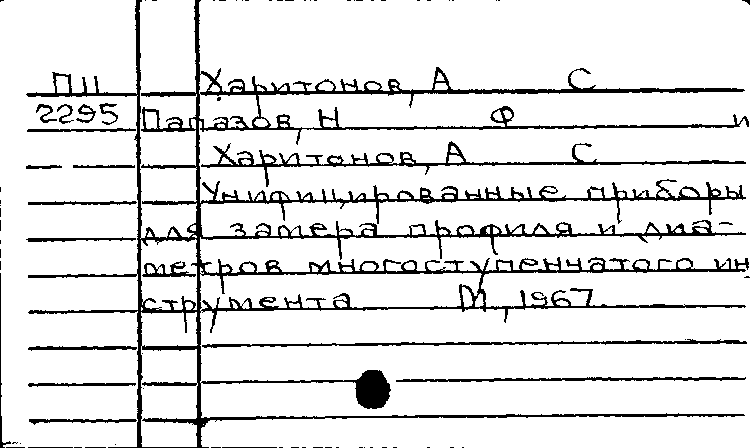 ПII Харитонов, А С
2295 Папазов, Н Ф и
Харитонов, А С
Унифицированные приборы
для замера профиля и диа-
метров многоступенчатого ин
струмента М, 1967.